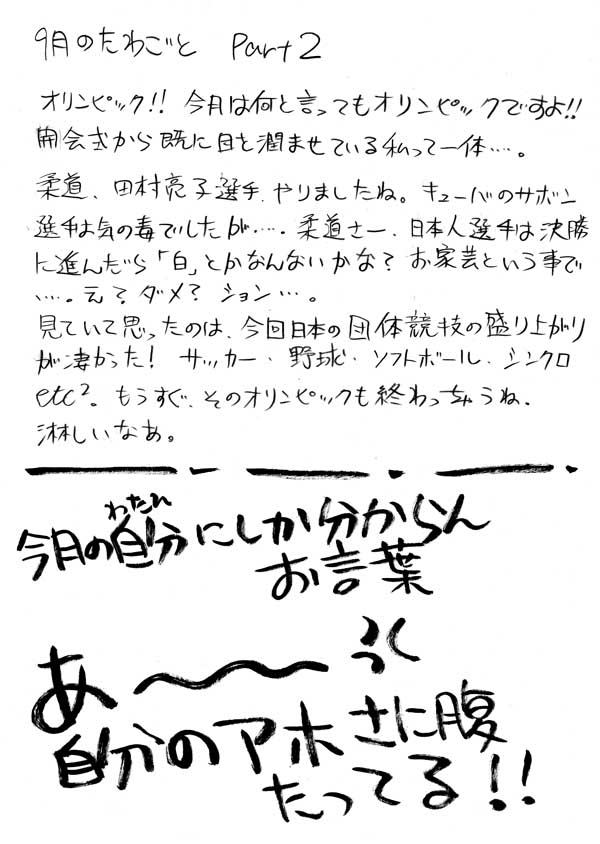 9月のたわごと Part2
オリンピック!! 今月は何と言ってもオリンピックですよ!!
開会式から既に目を潤ませている私って一体…。
柔道、田村亮子選手、やりましたね。キューバのサボン
選手は気の毒でしたが…。柔道さー、日本人選手は決勝
に進んだら「白」とかなんないかな？お家芸という事で
…。え？ダメ？ション…。
見ていて思ったのは、今回日本の団体競技の盛り上がり
が凄かった！サッカー・野球・ソフトボール・シンクロ
etc². もうすぐ、そのオリンピックも終わっちゃうね、
淋しいなあ。
わたし
今月の自分にしか分からん
お言葉
あ〜〜
自分のアホさに腹
たってる!!